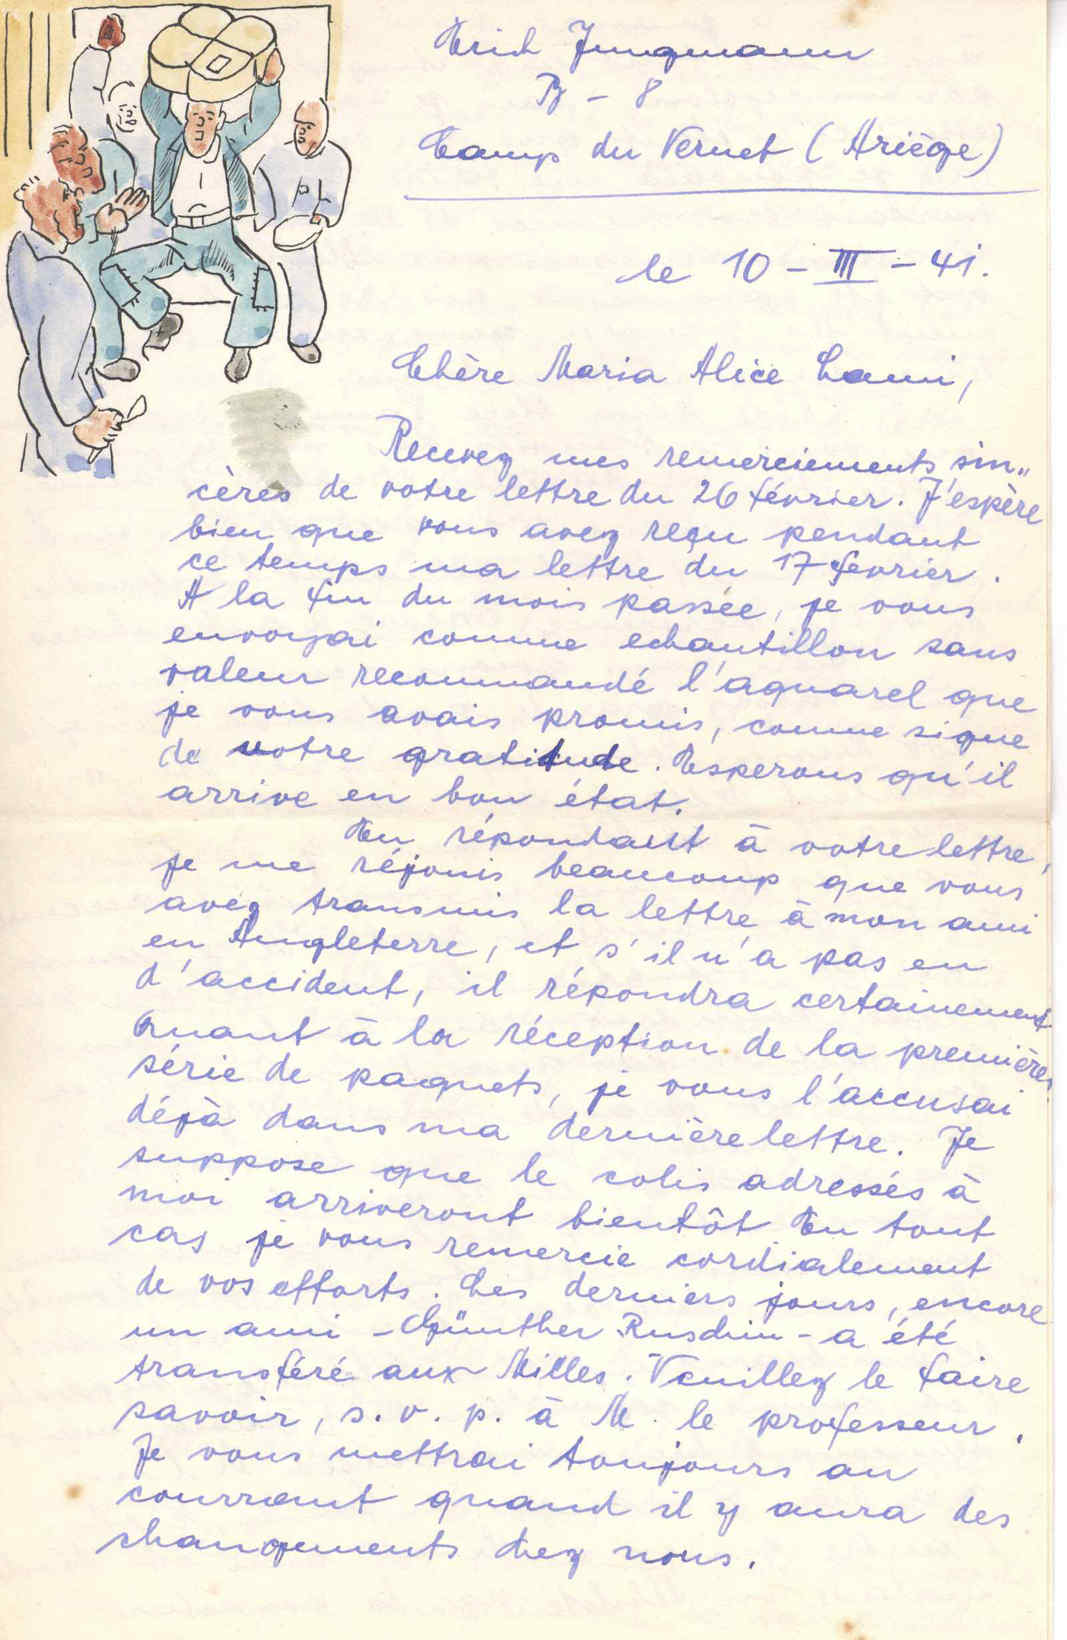 Erich Jungmann
B - 8
Camp du Vernet (Ariège)
le 10 - III - 41.
Chère Maria Alice Lami,
Recevez mes remerciements sin„
cères de votre lettre du 26 février. J'espère
bien que vous avez reçu pendant
ce temps ma lettre du 17 février.
A la fin du mois passée, je vous
envoyai comme echantillon sans
valeur recommandé l'aquarel que
je vous avais promis, comme signe
de notre gratitude. Esperons qu'il
arrive en bon état.
En répondant à votre lettre,
je me réjouis beaucoup que vous
avez transmis la lettre à mon ami
en Angleterre, et s'il n'a pas eu
d'accident, il répondra certainement
Quant à la réception de la première
série de paquets, je vous l'accusai
déjà dans ma dernière lettre. Je
suppose que le colis adressés à
moi arriveront bientôt En tout
cas je vous remercie cordialement
de vos efforts. Les derniers jours, encore
un ami - Günther Ruschin - a été
transféré aux Milles. Veuillez le faire
savoir, s. v. p. à M. le professeur.
Je vous mettrai toujours au
courrant quand il y aura des
changements chez nous.